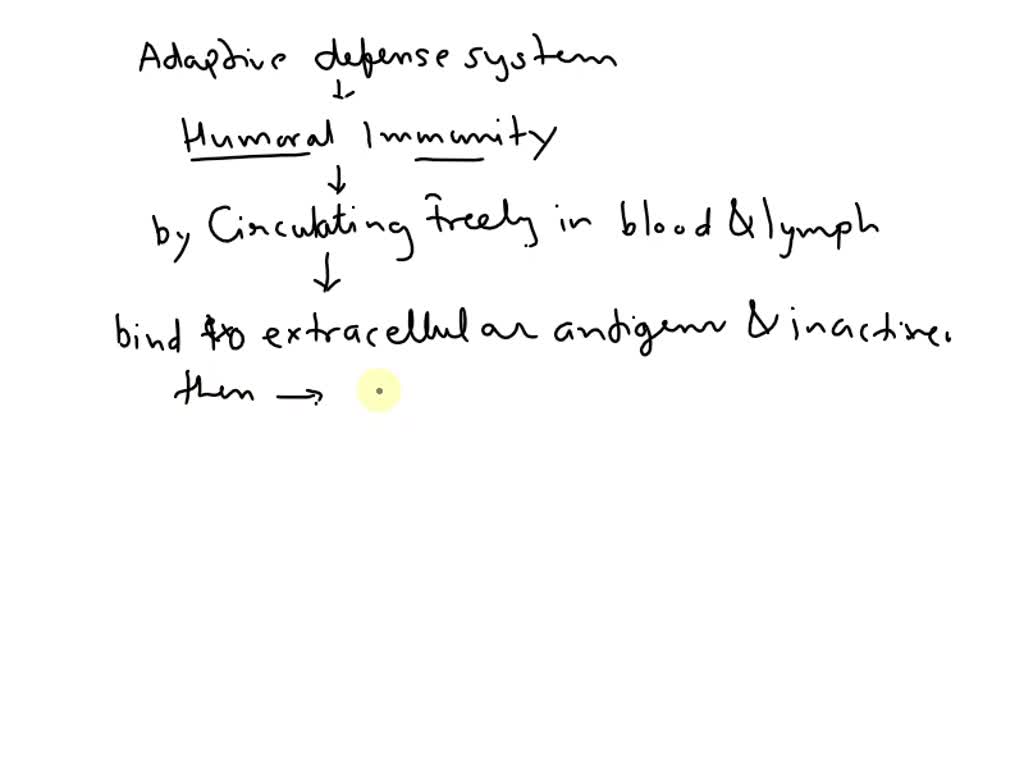 Adaptive defense system
↓
Humoral Immunity
↓
by Circulating Freely in blood & lymph
↓
bind to extracellular antigens & inactive.
then →